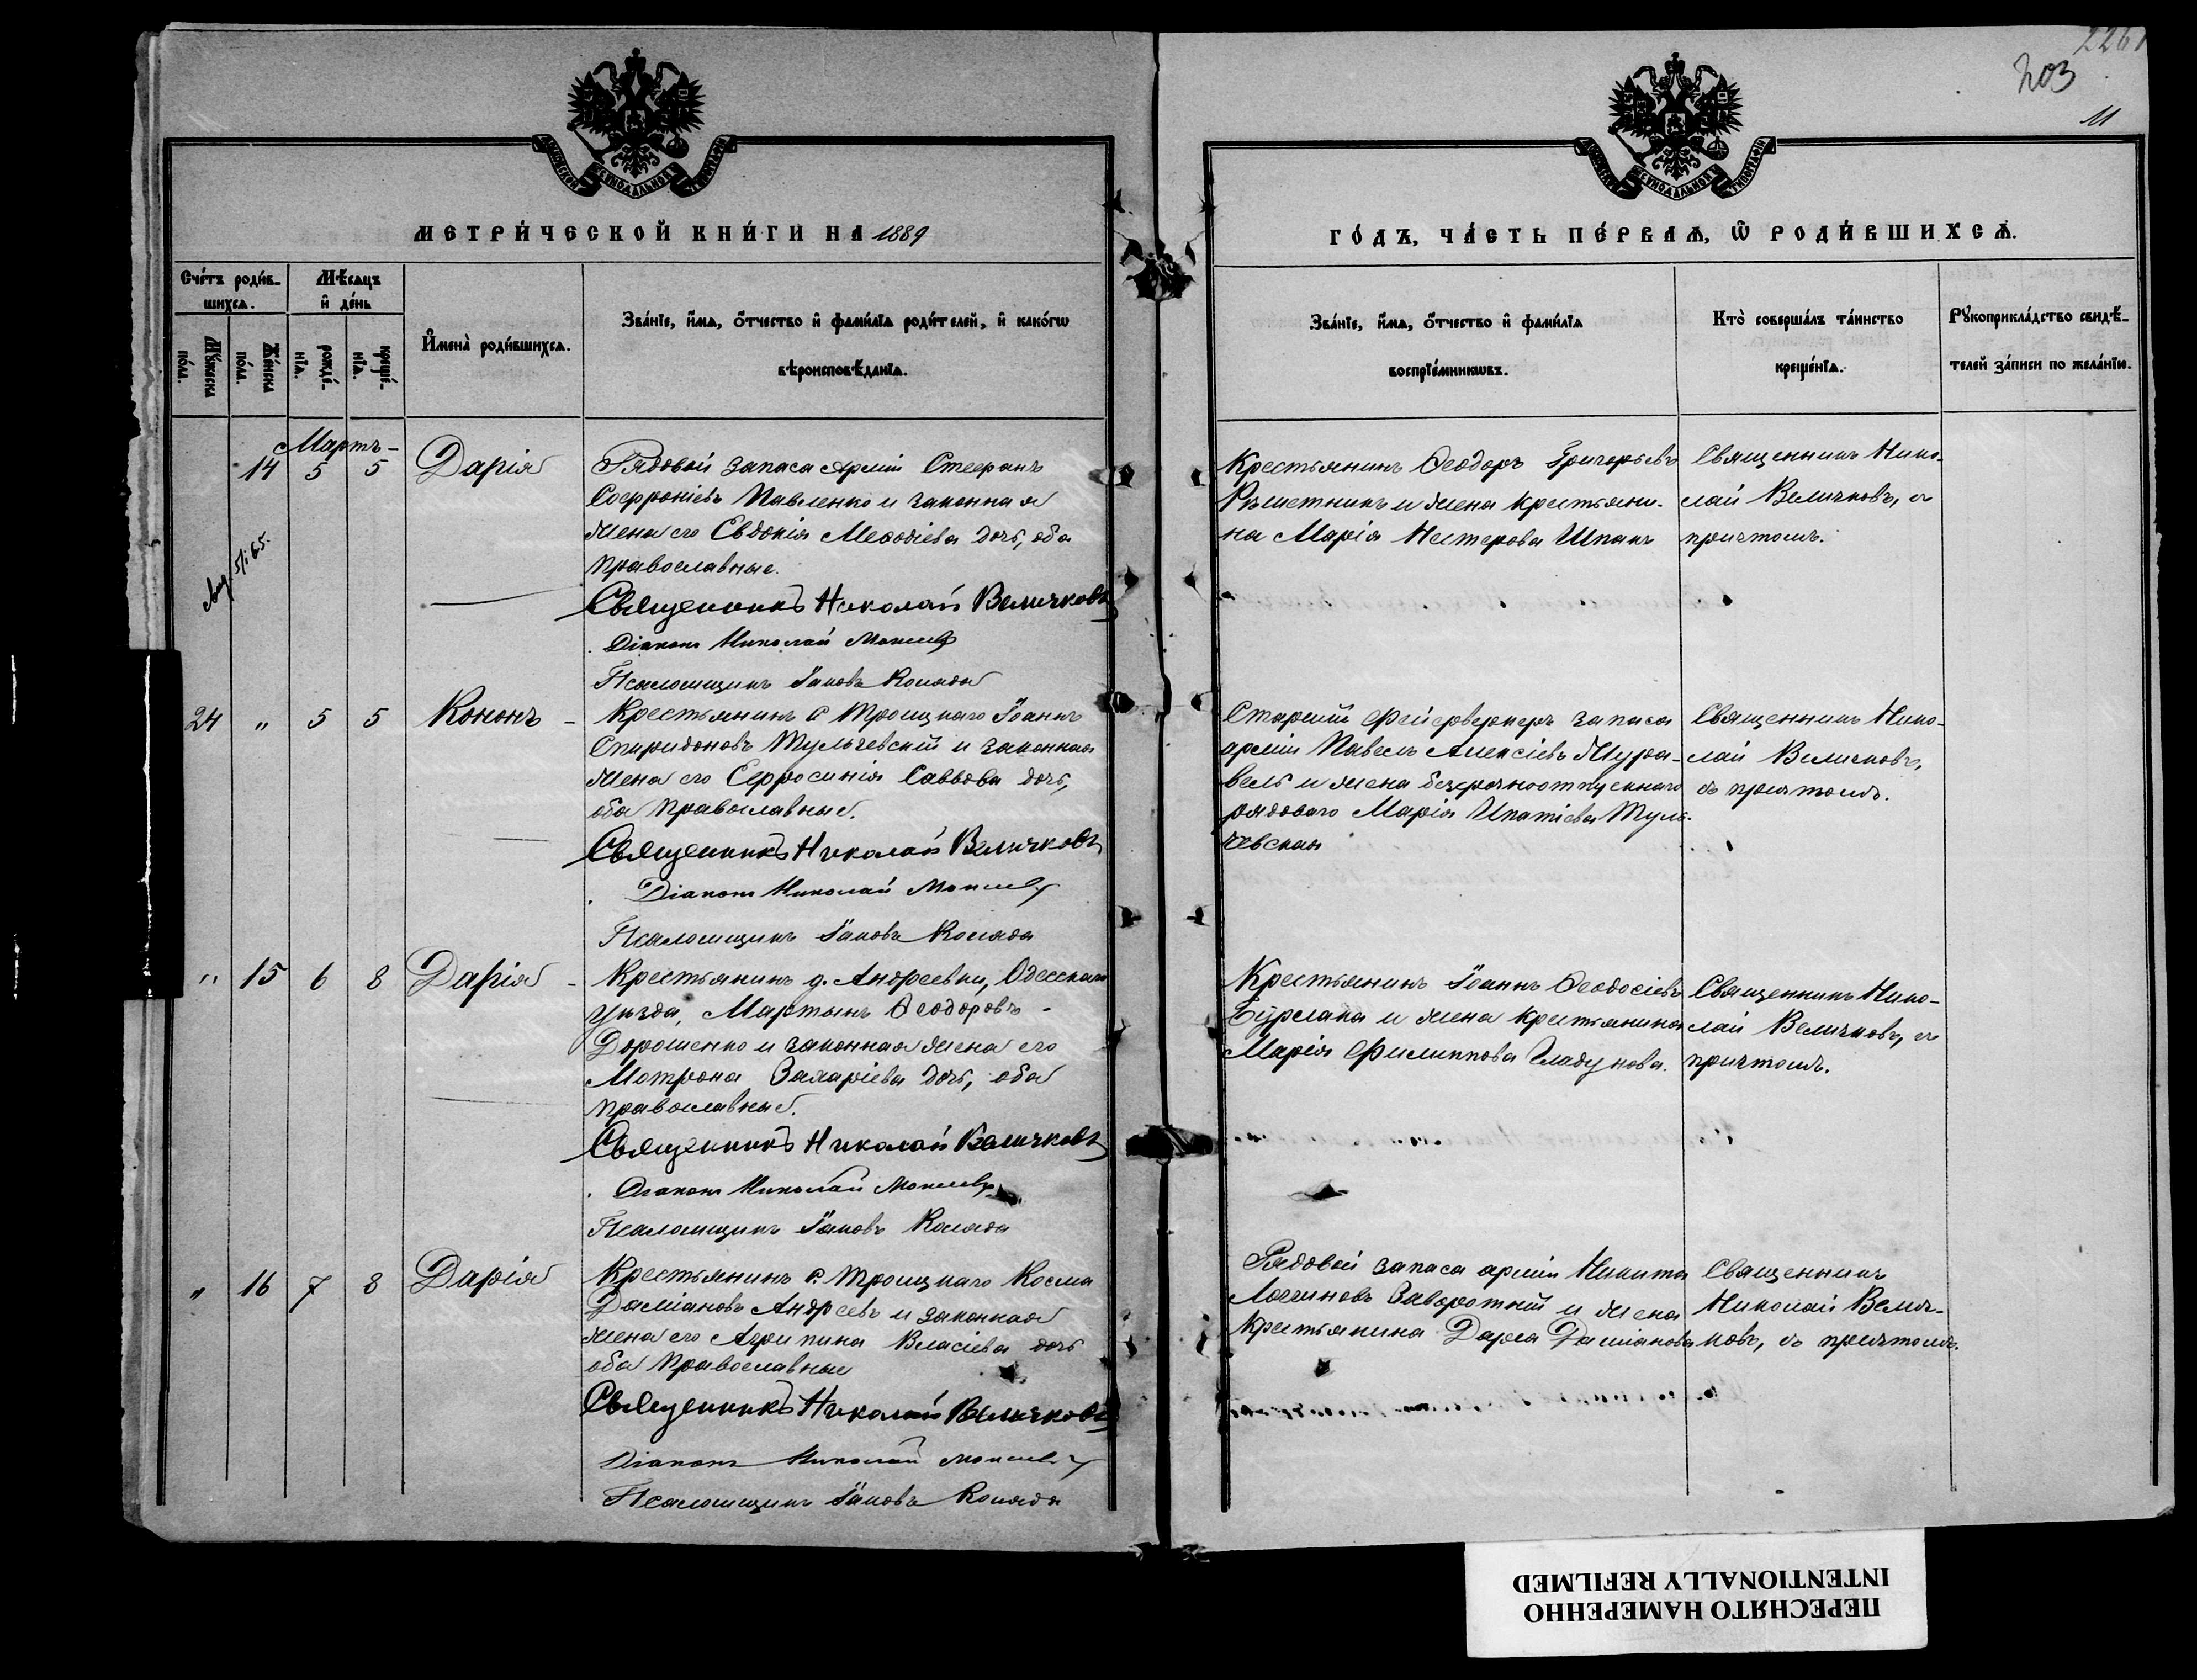 2261
203
11
МОСКОВСКОЙ СѴНОДАЛЬНОЙ ТИПОГРАФІИ
МОСКОВСКОЙ СѴНОДАЛЬНОЙ ТИПОГРАФІИ
МЕТРИ́ЧЕСКОЙ КНИ́ГИ НА 1889
ГО́ДЪ, ЧА́СТЬ ПЕ́РВАѦ, Ѽ РОДИ́ВШИХСѦ.
Сче́тъ роди́в-
шихсѧ.
Мѣ́сѧцъ
и҆ де́нь
Мꙋ́жеска
по́ла.
Же́нска
по́ла.
рожде́-
нїѧ.
креще́-
нїѧ.
И҆мена̀ роди́вшихсѧ.
Зва́нїе, и҆́мѧ, ѻ҆́тчество и҆ фами́лїѧ роди́телей, и҆ како́гѡ
вѣроисповѣ́данїѧ.
Зва́нїе, и҆́мѧ, ѻ҆́тчество и҆ фами́лїѧ
воспрїе́мникѡвъ.
Кто̀ соверша́лъ та́инство
креще́нїѧ.
Рꙋкоприкла́дство свидѣ́-
телей за́писи по жела́нїю.
Мартъ
14 5 5 Дарія
Рядовой запаса арміи Стефанъ
Софроніевъ Павленко и законная
жена его Евдокія Меѳодіева дочь, оба
православные.
Священникъ Николай Величковъ
Діаконъ Николай
Псаломщикъ Іаковъ Коляда
Крестьянинъ Ѳеодоръ Григорьевъ
Рѣшетникъ и жена крестьяни-
на Марія Нестерова Шпакъ
Священникъ Нико-
лай Величковъ, съ
причтомъ.
24 " 5 5 Кононъ
Крестьянинъ с. Троицкаго Іоаннъ
Спиридоновъ Тульчевскій и законная
жена его Евфросинія Саввова дочь,
оба православные.
Священникъ Николай Величковъ
Діаконъ Николай
Псаломщикъ Іаковъ Коляда
Старшій фейерверкеръ запаса
арміи Павелъ Алексіевъ Жура-
вель и жена безсрочноотпускнаго
рядоваго Марія Ипатіева Туль-
чевская
Священникъ Нико-
лай Величковъ,
съ причтомъ.
" 15 6 8 Дарія
Крестьянинъ д. Андреевки, Одесскаго
уѣзда, Мартынъ Ѳеодоровъ
Дорошенко и законная жена его
Мотрона Захаріева дочь, оба
православные.
Священникъ Николай Величковъ
Діаконъ Николай
Псаломщикъ Іаковъ Коляда
Крестьянинъ Іоаннъ Ѳеодосіевъ
Бурлака и жена крестьянина
Марія Филиппова Гладунова.
Священникъ Нико-
лай Величковъ, съ
причтомъ.
" 16 7 8 Дарія
Крестьянинъ с. Троицкаго Косма
Даміановъ Андреевъ и законная
жена его Агрипина Власіева дочь
оба православные
Священникъ Николай Величковъ
Діаконъ Николай
Псаломщикъ Іаковъ Коляда
Рядовой запаса арміи Никита
Логгиновъ Заворотній и жена
крестьянина Дарья Даміанова
Священникъ
Николай Велич-
ковъ, съ причтомъ.
ПЕРЕСНЯТО НАМЕРЕННО
INTENTIONALLY REFILMED